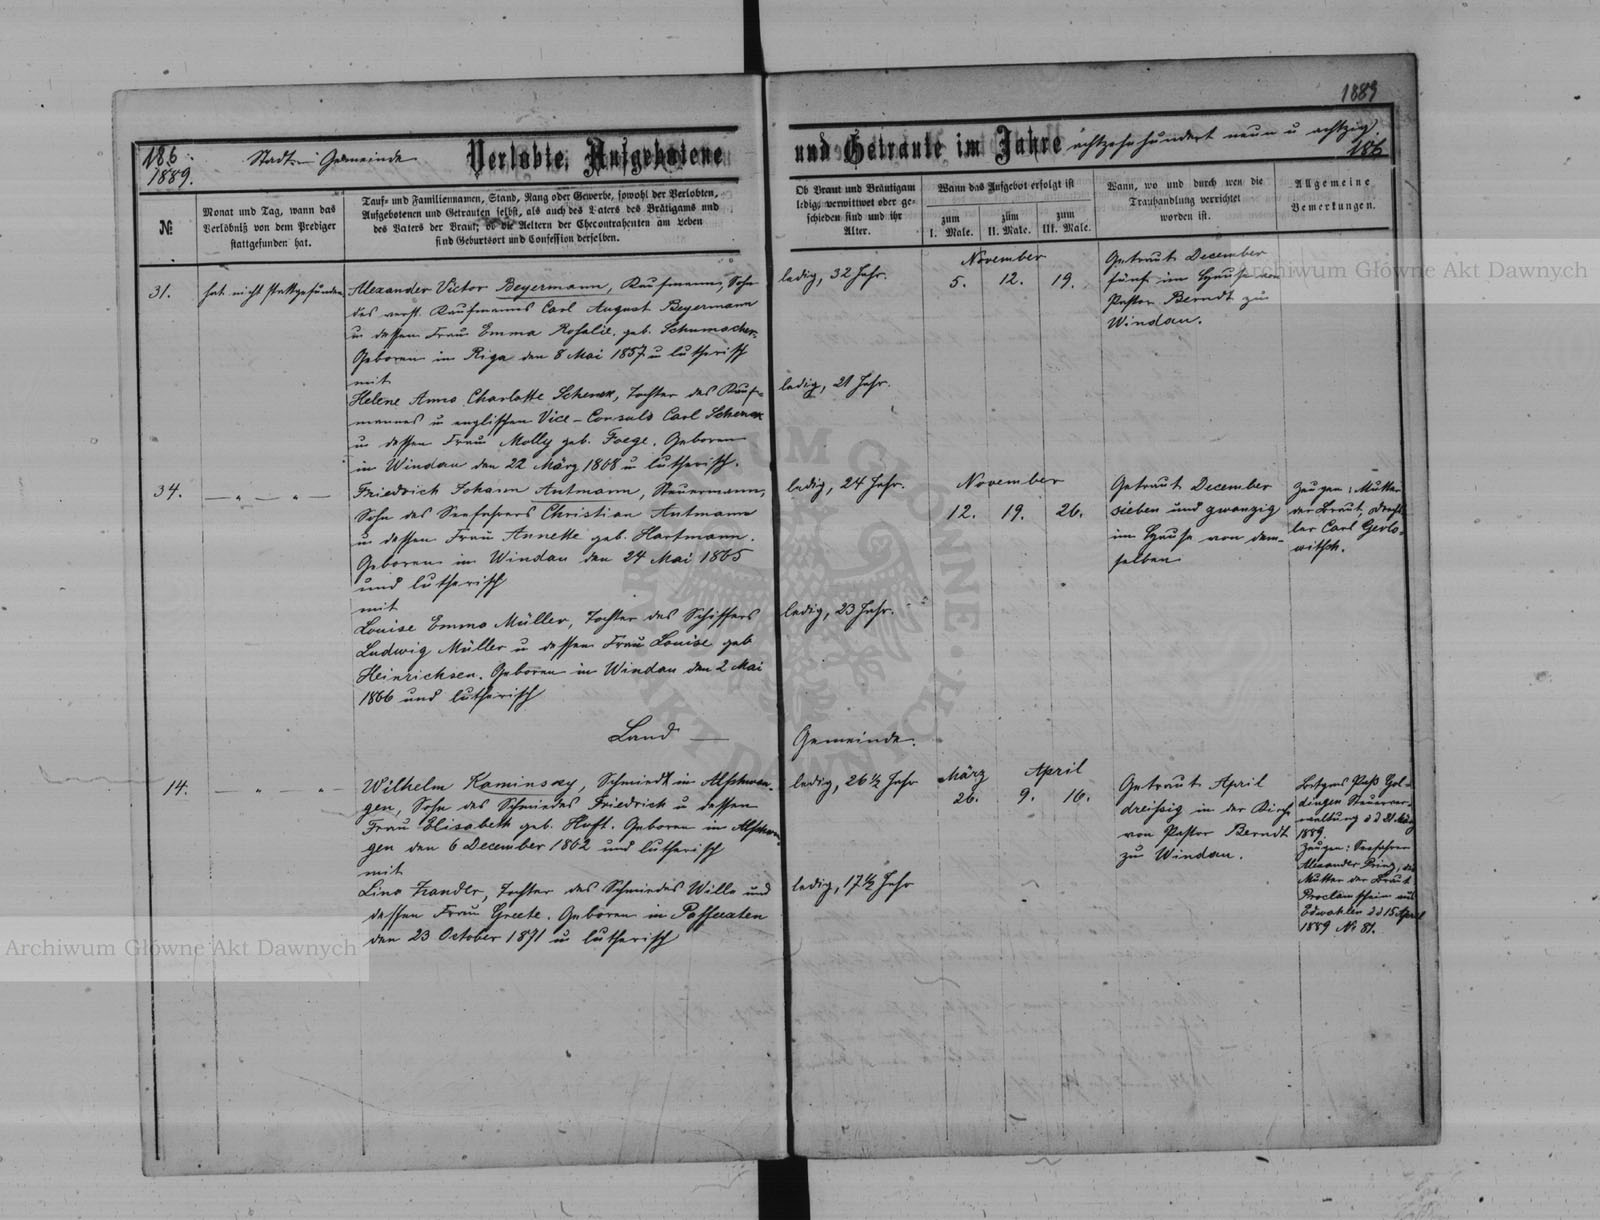 1889
186.
1889.
Stadt Gemeinde
Verlobte, Aufgebotene
und Getraute im Jahre achtzehnhundert neun u achtzig.
186
№
Monat und Tag, wann das
Verlöbniß von dem Prediger
stattgefunden hat.
Tauf- und Familiennamen, Stand, Rang oder Gewerbe, sowohl der Verlobten,
Aufgebotenen und Getrauten selbst, als auch des Vaters des Brätigams und
des Vaters der Braut; ob die Aeltern der Ehecontrahenten am Leben
sind Geburtsort und Confession derselben.
Ob Braut und Bräutigam
ledig, verwittwet oder ge-
schieden sind und ihr
Alter.
Wann das Aufgebot erfolgt ist
zum
I. Male.
zum
II. Male.
zum
III. Male.
Wann, wo und durch wen die
Trauhandlung verrichtet
worden ist.
Allgemeine
Bemerkungen.
31.
hat nicht stattgefunden
Alexander Victor Beyermann, Kaufmann, Sohn
des verst. Kaufmanns Carl August Beyermann
u dessen Frau Emma Rosalie, geb. Schumacher.
Geboren in Riga den 8 Mai 1857 u lutherisch
mit
Helene Anna Charlotte Schenck, Tochter des Kauf-
mannes u englischen Vice-Consuls Carl Schenck
u dessen Frau Molly geb. Foege. Geboren
in Windau den 22 März 1868 u lutherisch.
ledig, 32 Jahr.
ledig, 21 Jahr.
November
5. 12. 19.
Getraut December
fünf im Hause von
Pastor Berndt zu
Windau.
34.
— " — " —
Friedrich Johann Antmann, Steuermann,
Sohn des Seefahrers Christian Antmann
u dessen Frau Annette geb. Hartmann.
Geboren in Windau den 24 Mai 1865
und lutherisch
mit
Louise Emma Müller, Tochter des Schiffers
Ludwig Müller u dessen Frau Louise geb
Heinrichsen. Geboren in Windau den 2 Mai
1866 und lutherisch
ledig, 24 Jahr.
ledig, 23 Jahr.
November
12. 19. 26.
Getraut December
sieben und zwanzig
im Hause von dem-
selben
Zeugen: Mutter
der Braut, Drechs-
ler Carl Gerlo-
witsch.
Land — Gemeinde.
14.
— " — " —
Wilhelm Kaminsky, Schmiedt in Alschwan-
gen, Sohn des Schmiedes Friedrich u dessen
Frau Elisabeth geb. Huft. Geboren in Alschwan-
gen den 6 December 1862 und lutherisch
mit
Lina Zander, Tochter des Schmiedes Wille und
dessen Frau Greete. Geboren in Passexten
den 23 October 1871 u lutherisch
ledig, 26½ Jahr
ledig, 17½ Jahr
März April
26. 9. 16.
Getraut April
dreißig in der Kirche
von Pastor Berndt
zu Windau.
Pass Gol-
dingen Steuerver-
waltung d d 21 März
1889.
Zeugen: Seefahrer
Alexander Prinz, die
Mutter der Braut
Proclamschein aus
Edwahlen d d 15 April
1889 № 81.
Archiwum Główne Akt Dawnych
Archiwum Główne Akt Dawnych